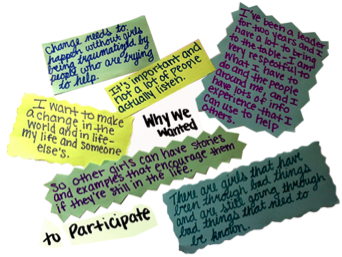 Change needs to
happen without girls
being traumatized by
people who are trying
to help.
It's important and
not a lot of people
actually listen.
I've been a leader
for two years and
have a lot to bring
to the table. I'm
very respectful to
what I have to
and the people
around me, and I
have lots of info,
experience that I
can use to help
others.
I want to make
a change in the
world and in life-
my life and someone
else's.
Why we
wanted
So other girls can have stories
and examples that encourage them
if they're still in the life.
There are girls that have
been through bad things
and are still going through
bad things that need to
be known.
to Participate